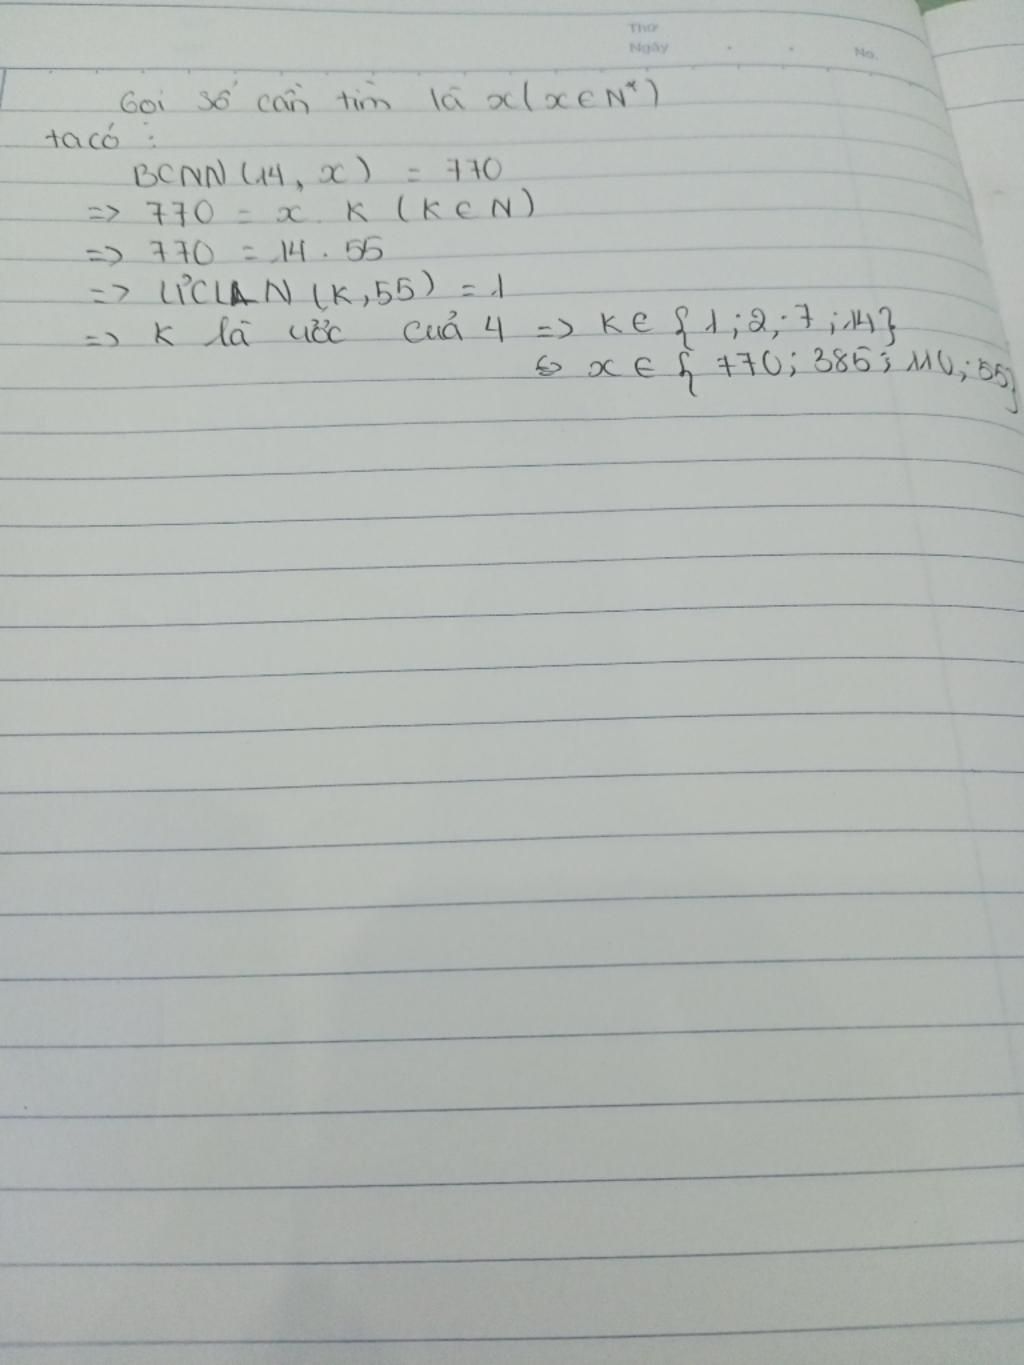 Thứ
Ngày . . No.
Gọi số cần tìm là x (x ∈ N*)
ta có :
BCNN (14, x) = 770
=> 770 = x . K (K ∈ N)
=> 770 = 14 . 55
=> ƯCLN (K, 55) = 1
=> K là ước cuả 4 => K ∈ {1 ; 2 ; 7 ; 14}
<=> x ∈ { 770 ; 385 ; 110 ; 55}